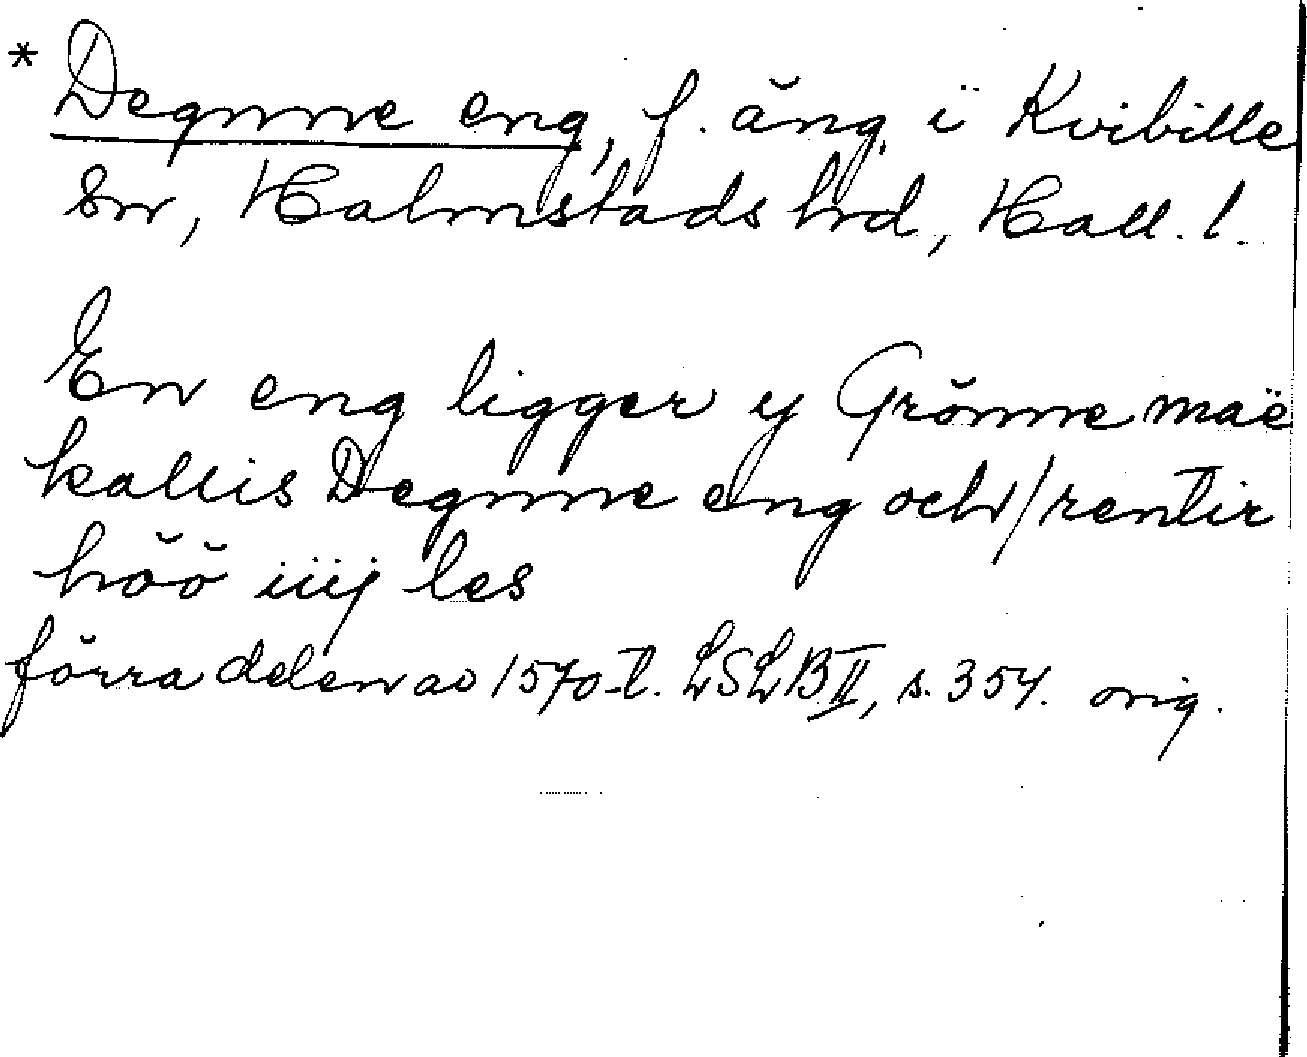 * Degnne eng, f. äng i Kvibille
sn, Halmstads hd, Hall. l.
En eng ligger y Grönne maë
kallis Degnne eng och/rentir
höö iiij les
förra delen av 1570-t. LSLB II, s. 354. orig.